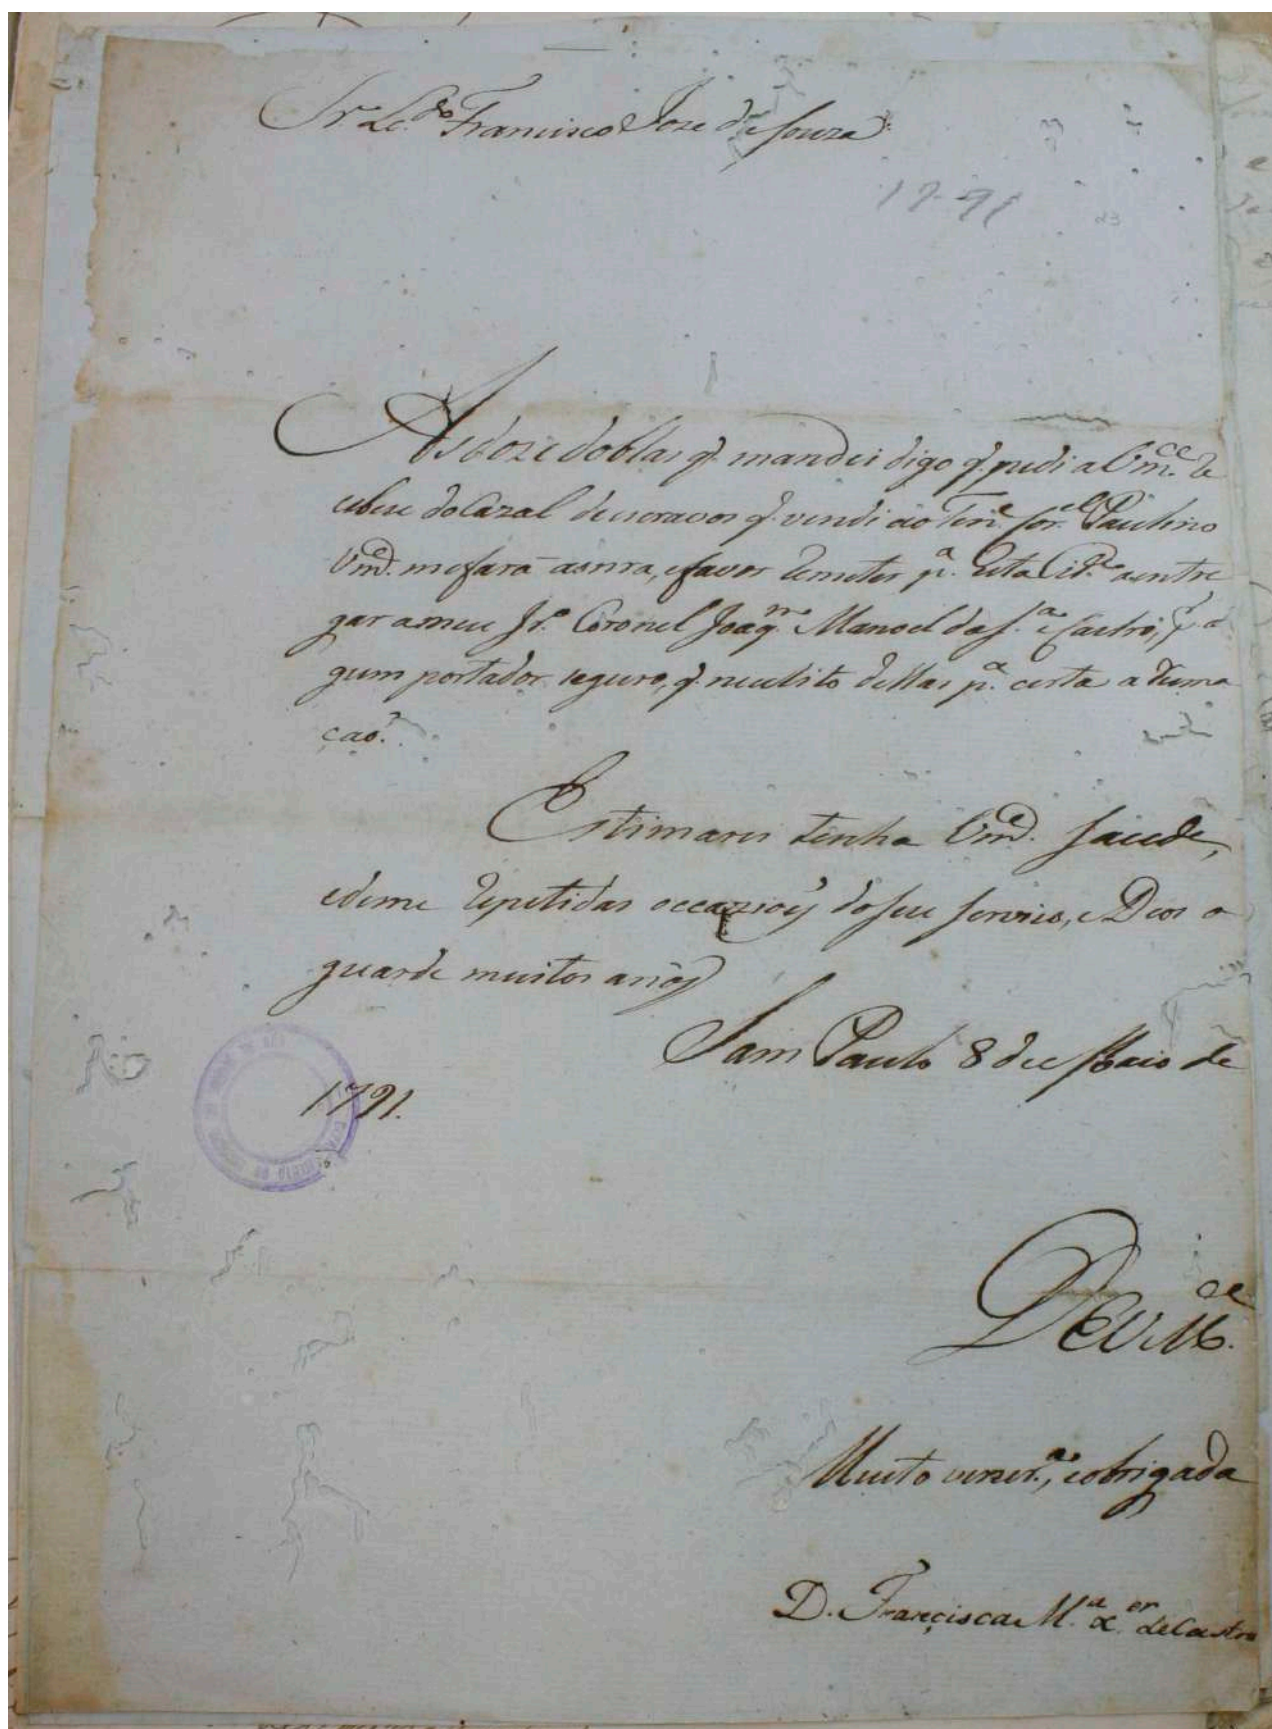 Sr. Lc.do Francisco Joze de Souza
1791
As doze doblas q. mandei digo q. pedi a Vm.ce Re
cebese do Cazal de escravos q. vendi ao Ten.e Cor.el Paulino
Vm.ce me fará a onra, e favor Remeter p.a Esta Cid.e a entre
gar a meu Ir.o Coronel Joaq.m Manoel da S.a e Castro, p.r al
gum portador seguro, q. necesito dellas p.a certa a Rema
çaõ.
Estimarei tenha Vm.ce Saude,
e deme Repetidas occazioẽs do seu Servico, e Deos o
guarde muitos annos
Sam Paulo 8 de Maio de
1791.
De V M.ce
Muito vener.a, e obrigada
D. Francisca M.a X.er de Castro